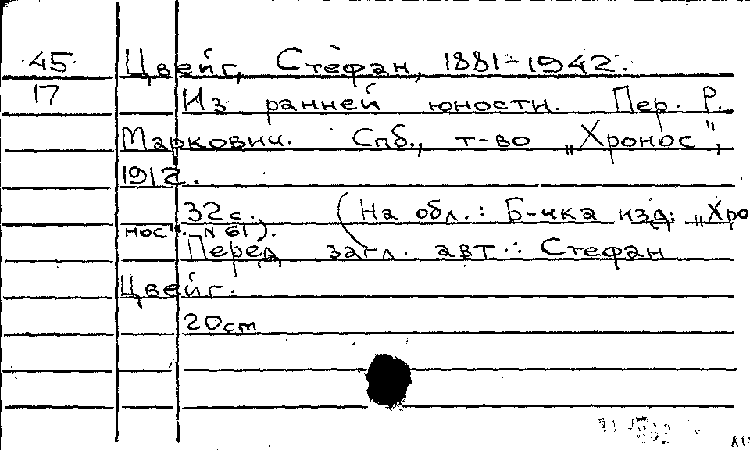 45 Цвейг, Стефан, 1881-1942.
17 Из ранней юности. Пер. Р.
Маркович. Спб., т-во „Хронос",
1912.
32с. (На обл.: Б-чка изд. „Хро
нос". N 61).
Перед загл. авт.: Стефан
Цвейг.
20cm